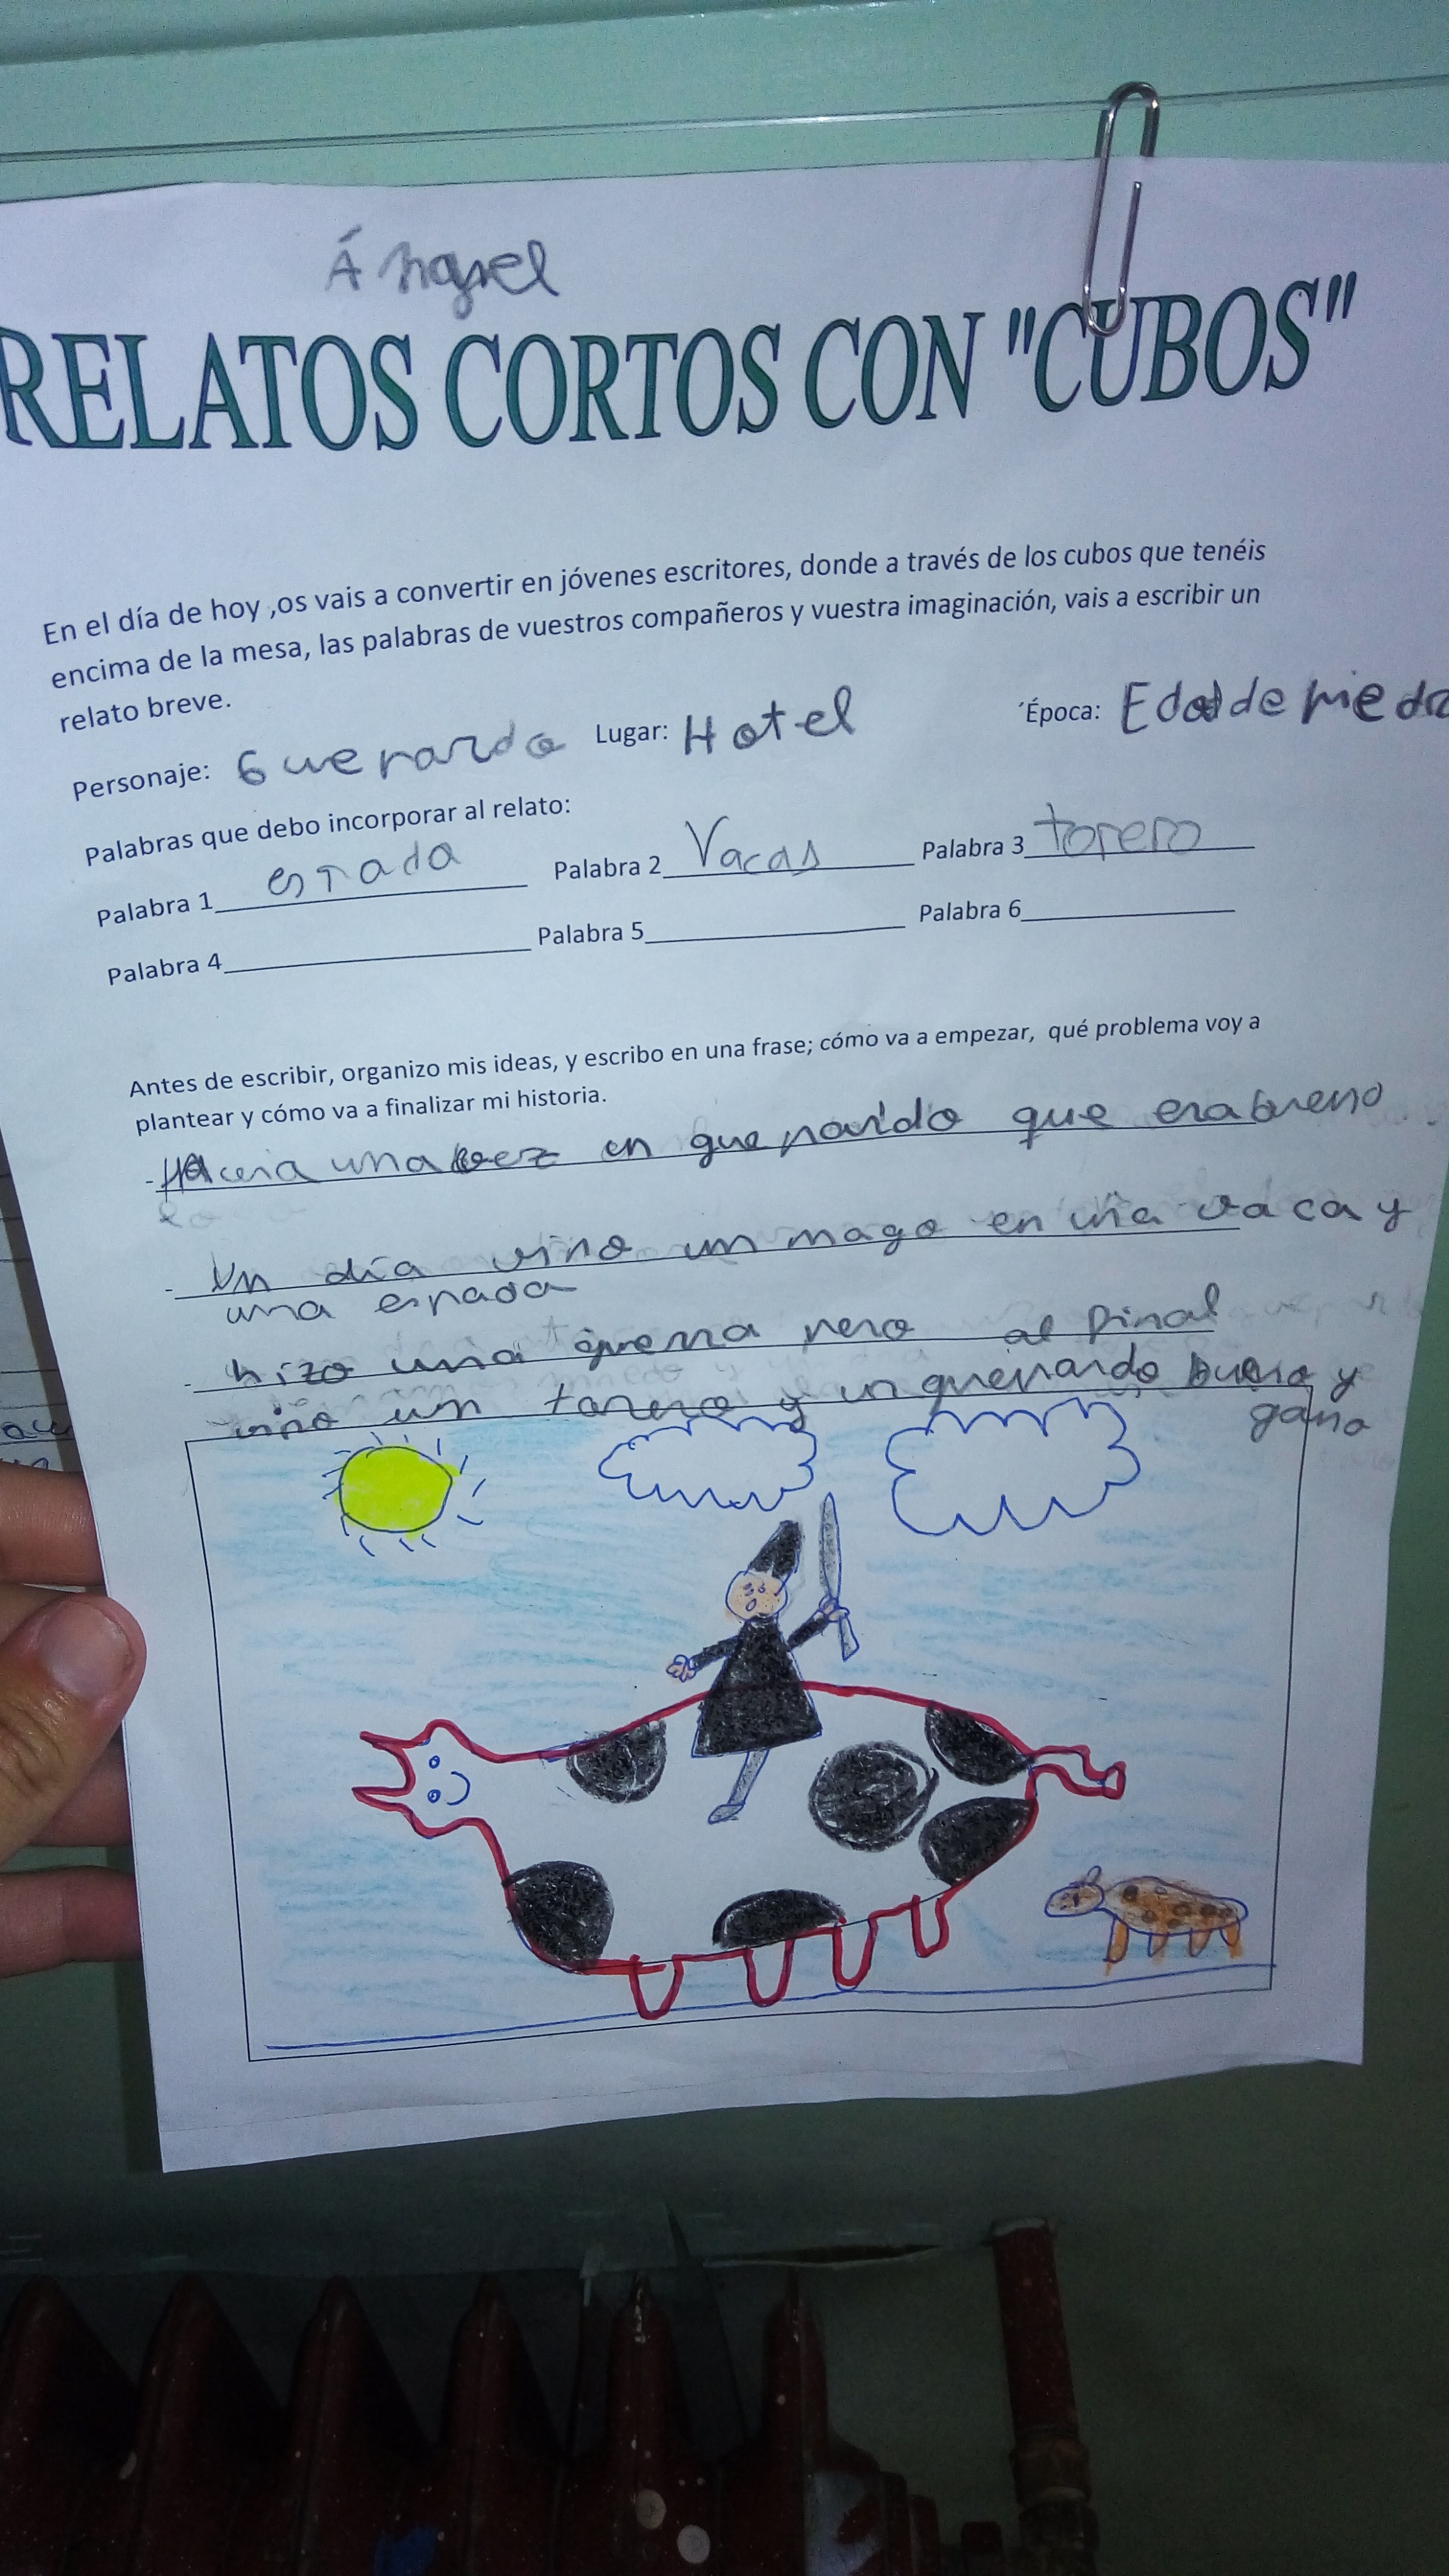 Ángel
RELATOS CORTOS CON "CUBOS"
En el día de hoy ,os vais a convertir en jóvenes escritores, donde a través de los cubos que tenéis
encima de la mesa, las palabras de vuestros compañeros y vuestra imaginación, vais a escribir un
relato breve.
Personaje: Lugar: Hotel ´Época: Edad de
Palabras que debo incorporar al relato:
Palabra 1 espada Palabra 2 Vacas Palabra 3 torero
Palabra 4 Palabra 5 Palabra 6
Antes de escribir, organizo mis ideas, y escribo en una frase; cómo va a empezar, qué problema voy a
plantear y cómo va a finalizar mi historia.
- una vez en que era bueno
- Un día vino un mago en una vaca y
una espada
- hizo una guerra pero al final
vino un torero y un bueno y
gano